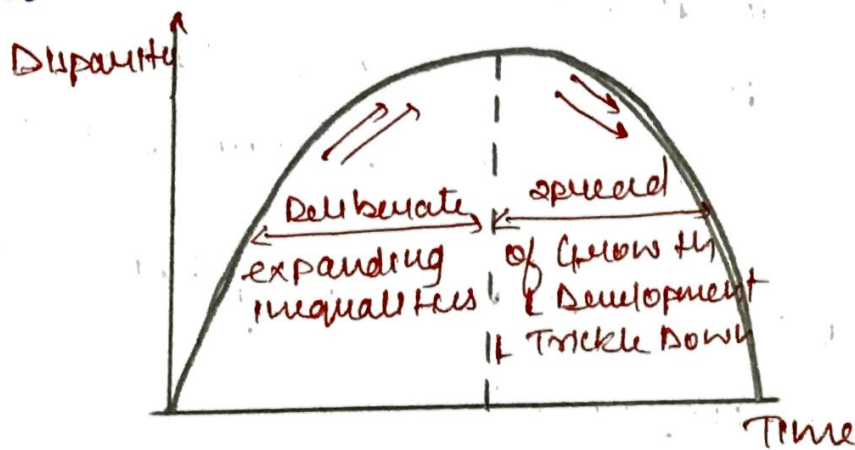 Disparity
Deliberate
expanding
inequalities
spread
of Growth
& Development
Trickle Down
Time